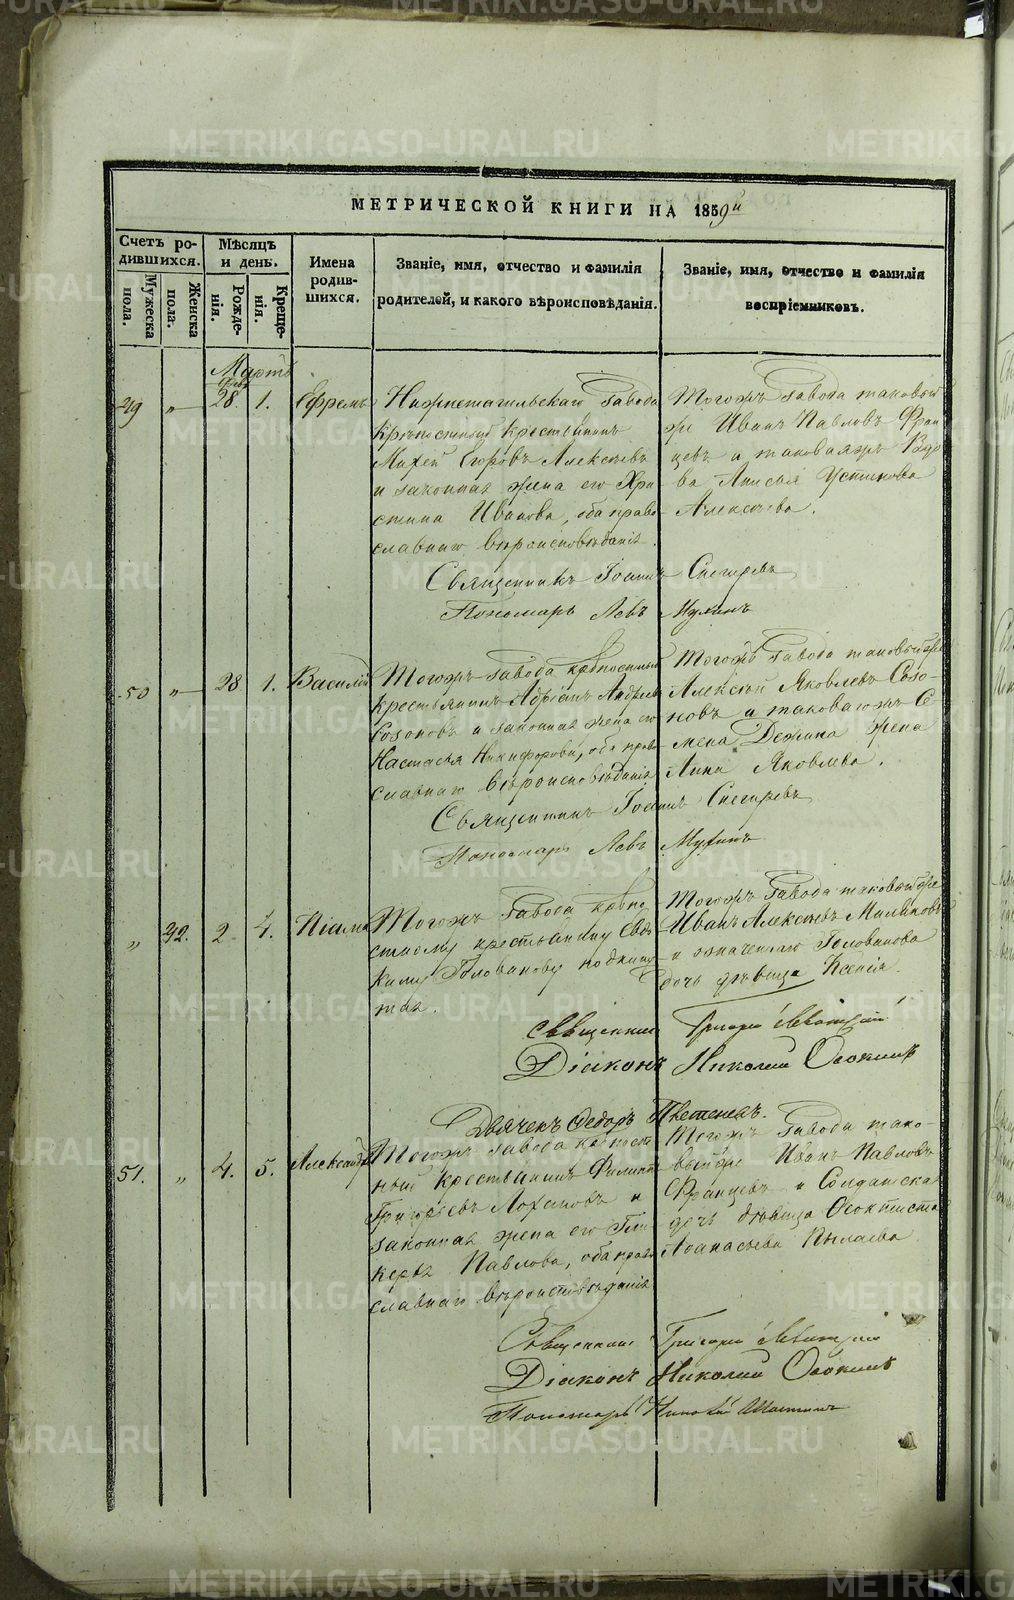 МЕТРИЧЕСКОЙ КНИГИ НА 1859й
Счетъ ро-
дившихся.
Мужеска
пола.
Женска
пола.
Мѣсяцъ
и день.
Рожде-
нія.
Креще-
нія.
Имена
родив-
шихся.
Званіе, имя, отчество и фамилія
родителей, и какого вѣроисповѣданія.
Званіе, имя, отчество и фамилія
воспріемниковъ.
Мартъ
49 „ 28. 1. Ефремъ
Нижнетагильскаго завода
крѣпостный крестьянинъ
Михей Егоровъ Алексѣевъ
и законная жена его Хри
стина Иванова, оба право
славнаго вѣроисповѣданія.
Тогожъ завода таковый
же Иванъ Павловъ Фран
цевъ и таковаяжъ Вдо
ва Анисья Устинова
Алексѣева.
Священникъ Іоаннъ Снегиревъ
Пономарь Левъ Мухинъ
50 „ 28 1. Василій
Тогожъ завода крѣпостный
крестьянинъ Адріанъ Андреевъ
Созоновъ и законная жена его
Настасья Никифорова, оба право
славнаго вѣроисповѣданія
Тогожъ завода таковыйже
Алексѣй Яковлевъ Созо-
новъ и таковагожъ Се
мена Дежина жена
Анна Яковлева.
Священникъ Іоаннъ Снегиревъ
Пономарь Левъ Мухинъ
„ 42. 2. 4. Піама
Тогожъ завода крѣпо
стному крестьянину Евдо
киму Голованову подкину
тая.
Тогожъ завода таковыйже
Иванъ Алексѣевъ
и означеннаго Голованова
дочь дѣвица Ксенія.
Священникъ Григорій
Діаконъ Николай Осокинъ
Дьячекъ Федоръ
51. „ 4. 5. Александръ
Тогожъ завода крѣпост
ный крестьянинъ Филиппъ
Григорьевъ Лохановъ и
законная жена его Гли
керья Павлова, оба право
славнаго вѣроисповѣданія
Тогожъ завода тако-
выйже Иванъ Павловъ
Францевъ и Солдатская
дочь дѣвица Ѳеоктиста
Аѳанасьева Пылаева.
Священникъ Григорій
Діаконъ Николай Осокинъ
Пономарь
METRIKI.GASO-URAL.RU